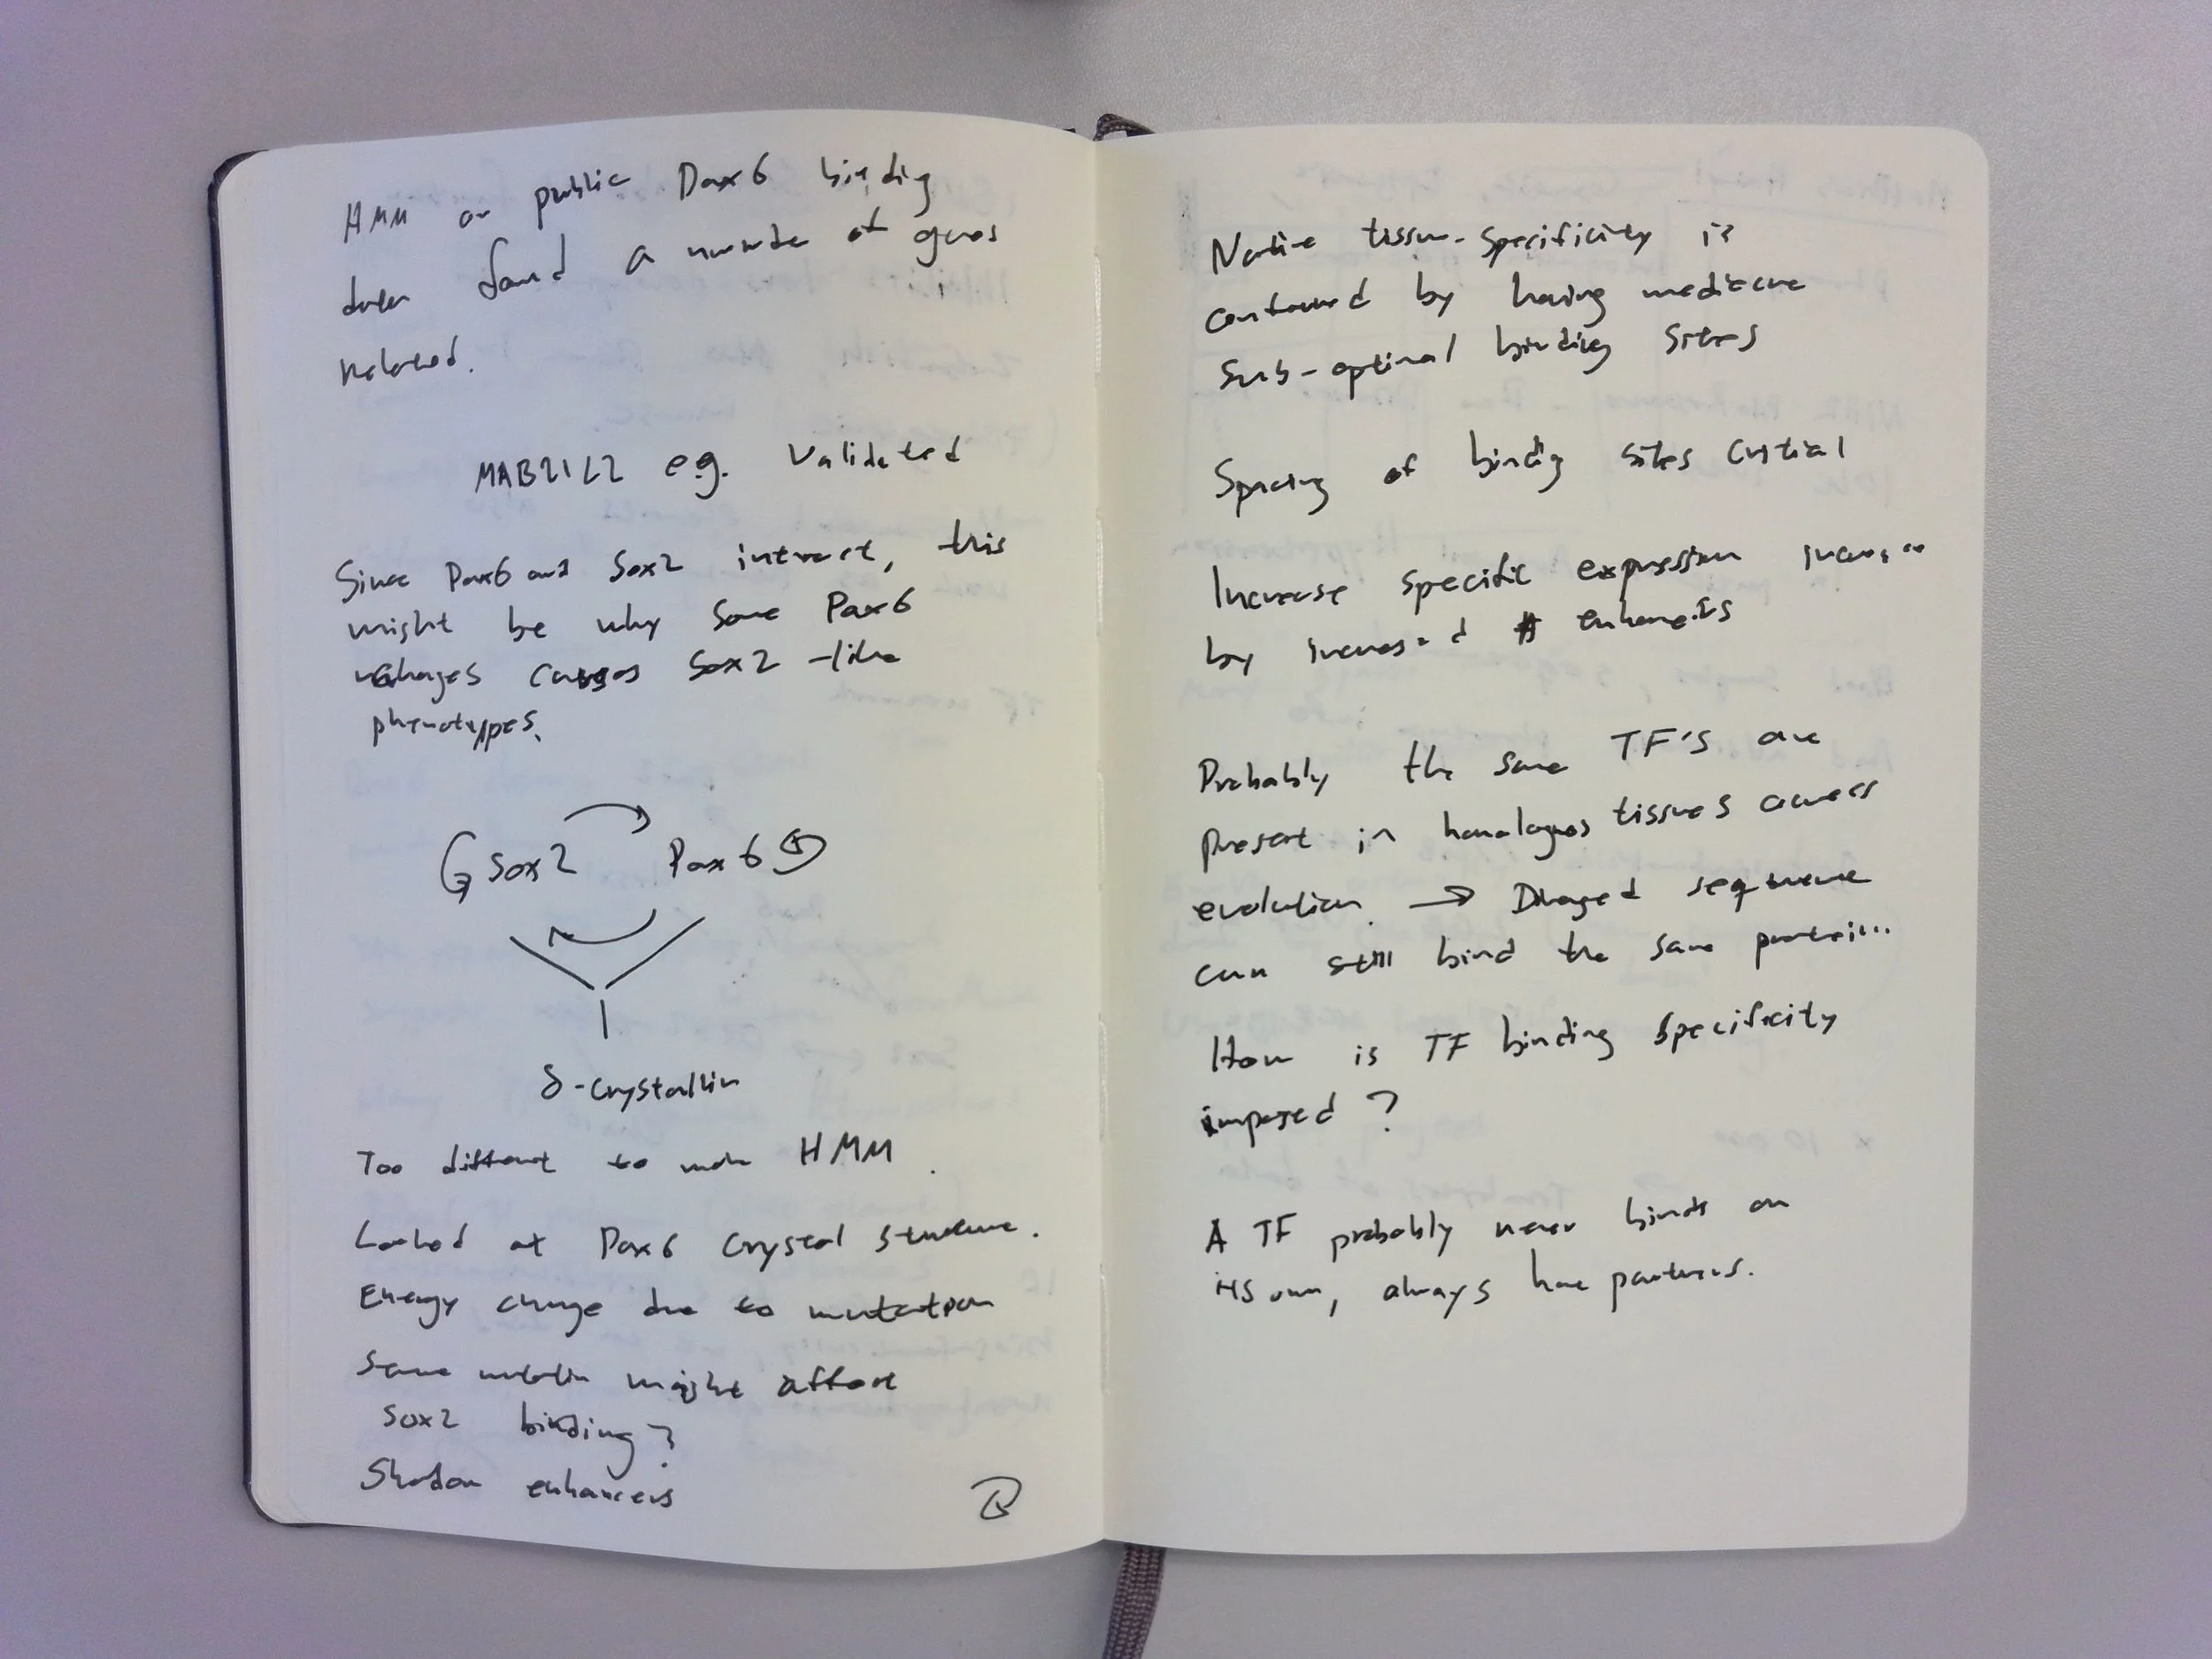 HMM on public Pax6 binding
data found a number of genes
related.
MAB21L2 e.g. validated
Since Pax6 and Sox2 interact, this
might be why some Pax6
changes causes Sox2-like
phenotypes.
Sox2 Pax6
δ-crystallin
Too different to make HMM.
Looked at Pax6 crystal structure.
Energy change due to mutation
Same mutation might affect
Sox2 binding?
Shadow enhancers
Native tissue-specificity is
by having mediocre
sub-optimal binding sites
Spacing of binding sites critial
Increase specific expression
by increased # enhancers
Probably the same TF's are
present in homologous tissues across
evolution. → sequence
can still bind the same
How is TF binding specificity
imposed?
A TF probably never binds on
its own, always have partners.